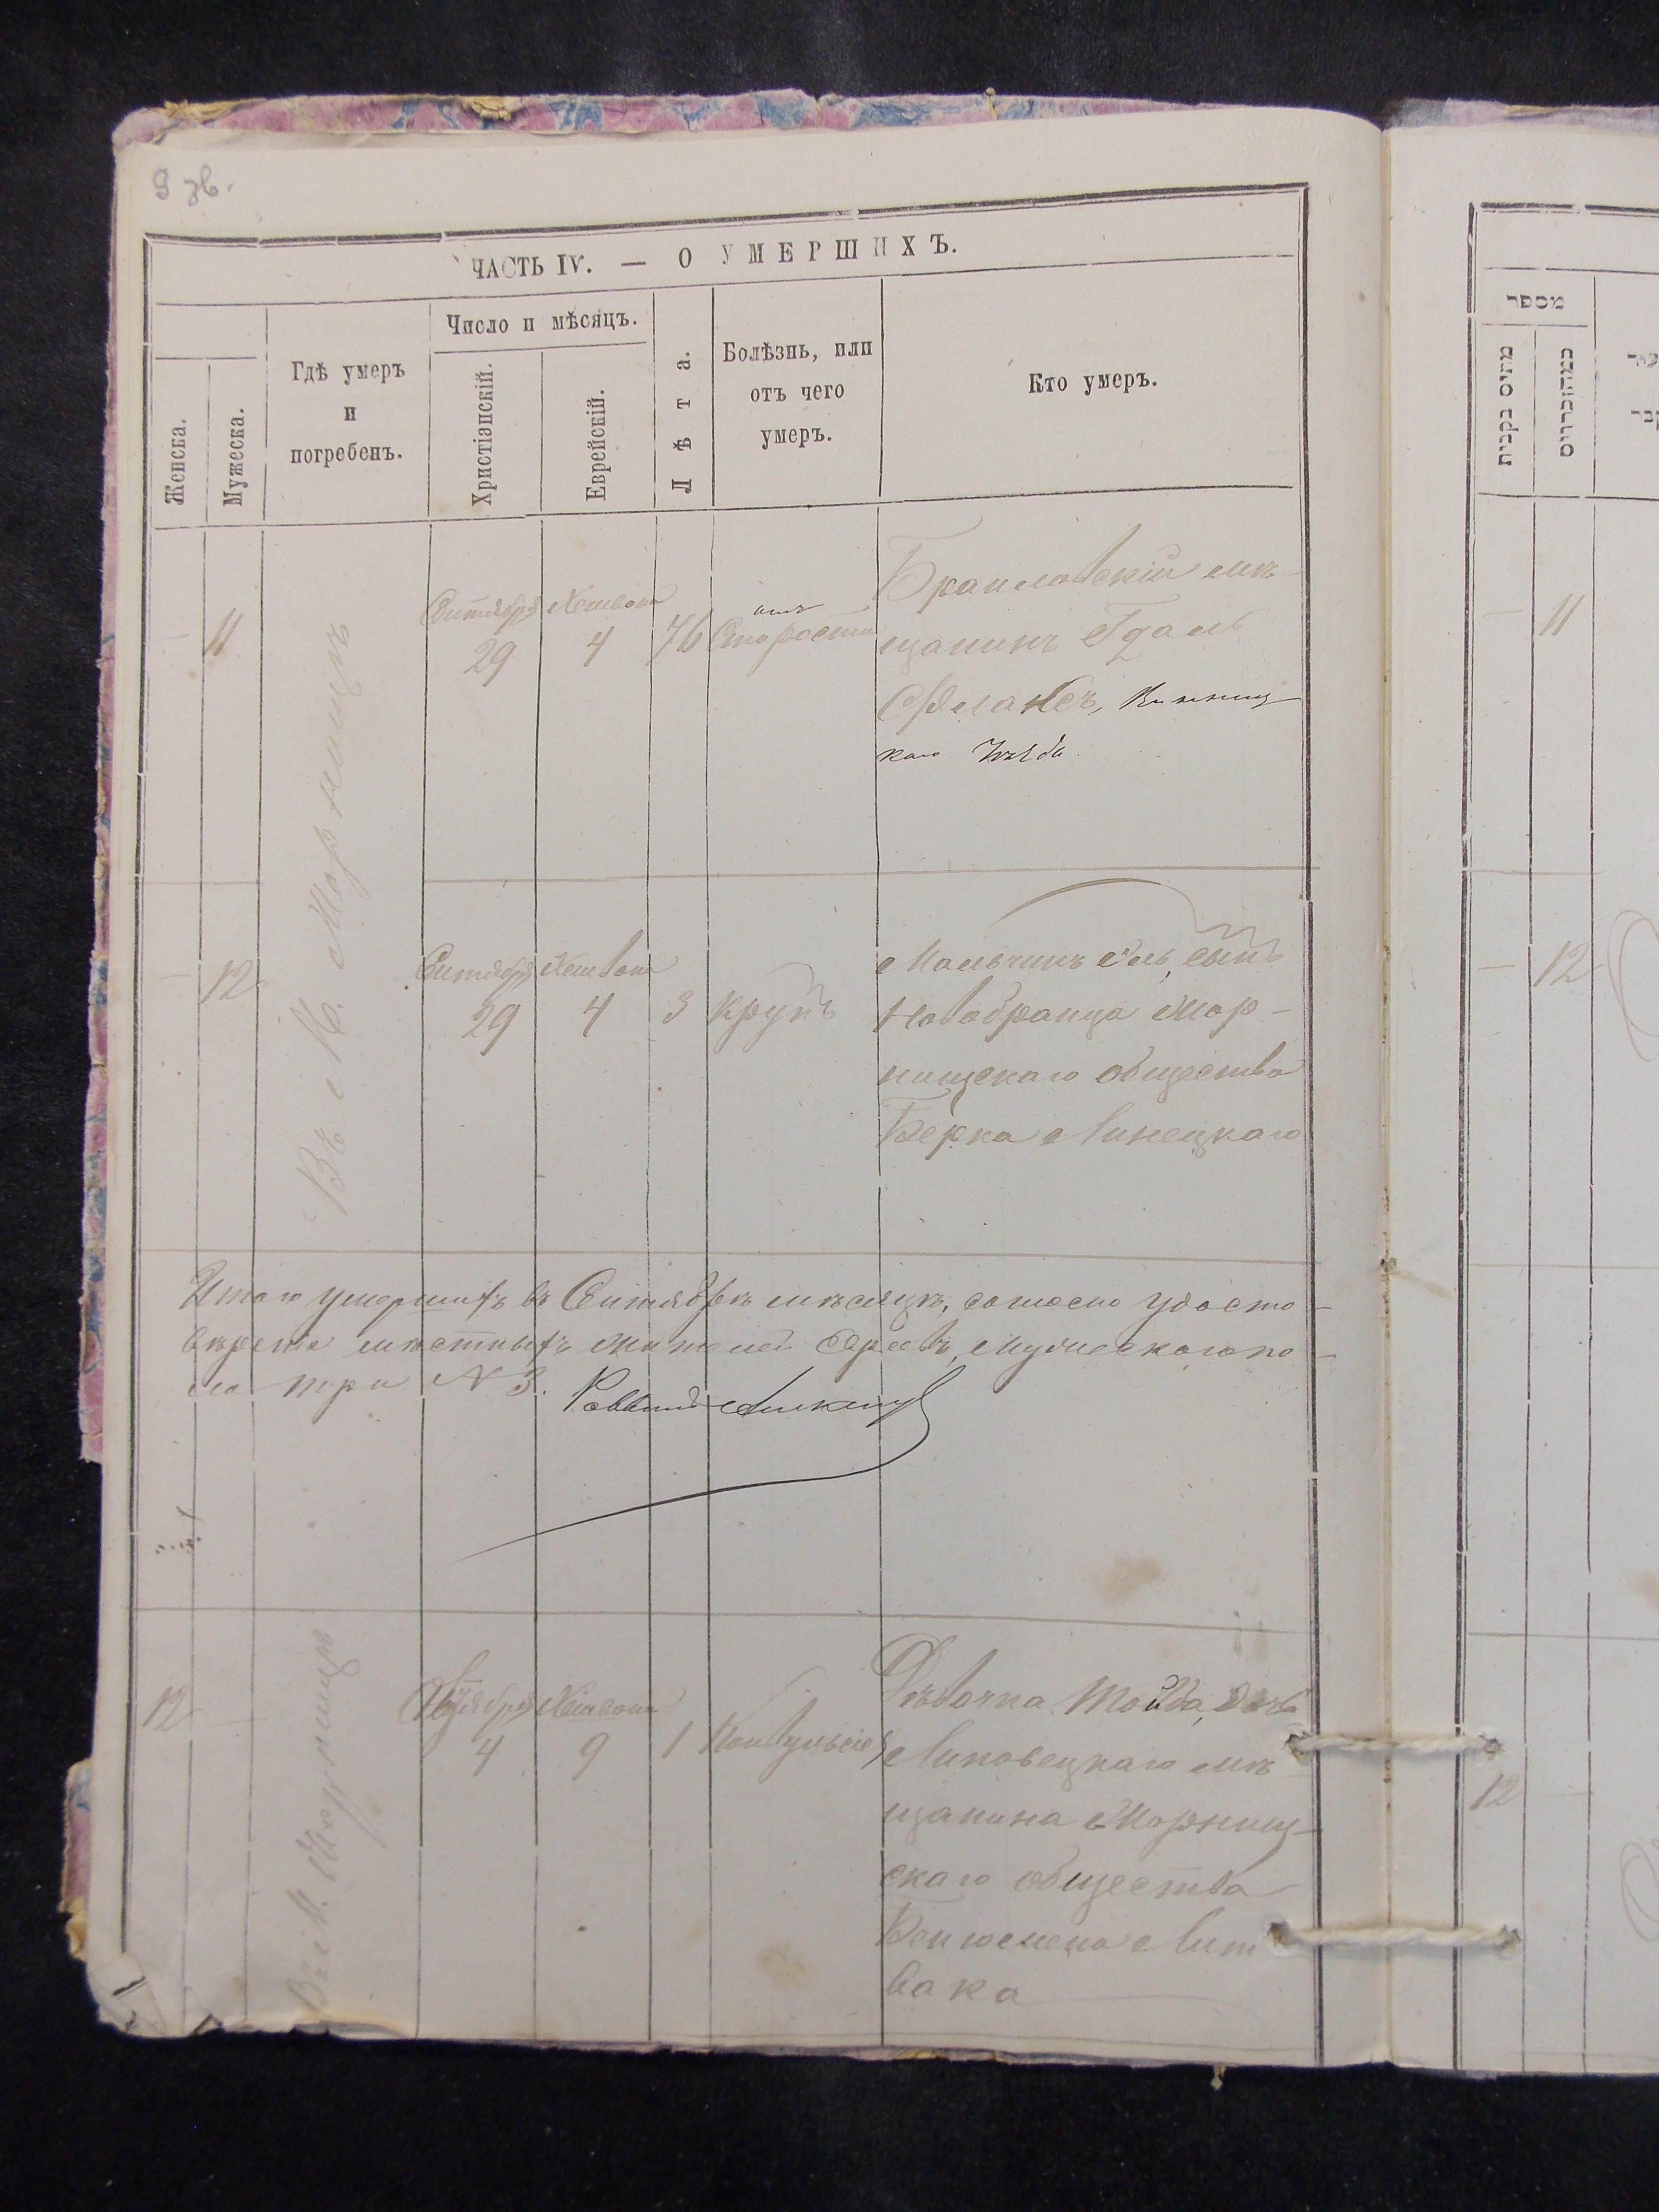 9 зв.
ЧАСТЬ IV. — О УМЕРШИХЪ.
Женска.
Мужеска.
Гдѣ умеръ
и
погребенъ.
Число и мѣсяцъ.
Христіанскій.
Еврейскій.
Лѣта.
Болѣзнь, или
отъ чего
умеръ.
Кто умеръ.
מספר
— 11
Въ М. Жорнищѣ
Сентября 29
Хешвона 4
76
отъ
Старости
Браиловскій мѣ-
щанинъ Гдаль
Винниц-
каго Уѣзда
— 12
Сентября 29
Хешвона 4
3
Крупъ
Мальчикъ сынъ
Новобранца Жор-
нищскаго общества
Берка Линецкаго
Итого умершихъ въ Сентябрѣ мѣсяцѣ, согласно удосто-
вѣренія мѣстныхъ жителей Евреевъ, Мужескаго по-
ла три N 3. Раввинъ
12 —
Въ М. Жорнищѣ
Октября 4
Хешвона 9
1
Конвульсіе
Дѣвочка Тойба, дочь
Липовецкаго мѣ-
щанина Жорнищ-
скаго общества
Беніомена Лит-
вака
— 11
— 12
12 —